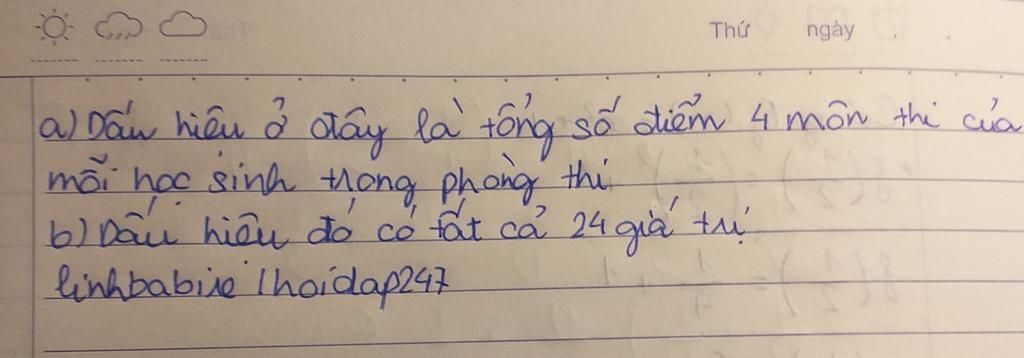 Thứ ngày
a) Dấu hiệu ở đây là tổng số điểm 4 môn thi của
mỗi học sinh trong phòng thi
b) Dấu hiệu đó có tất cả 24 giá trị
linhbabixe / hoidap247